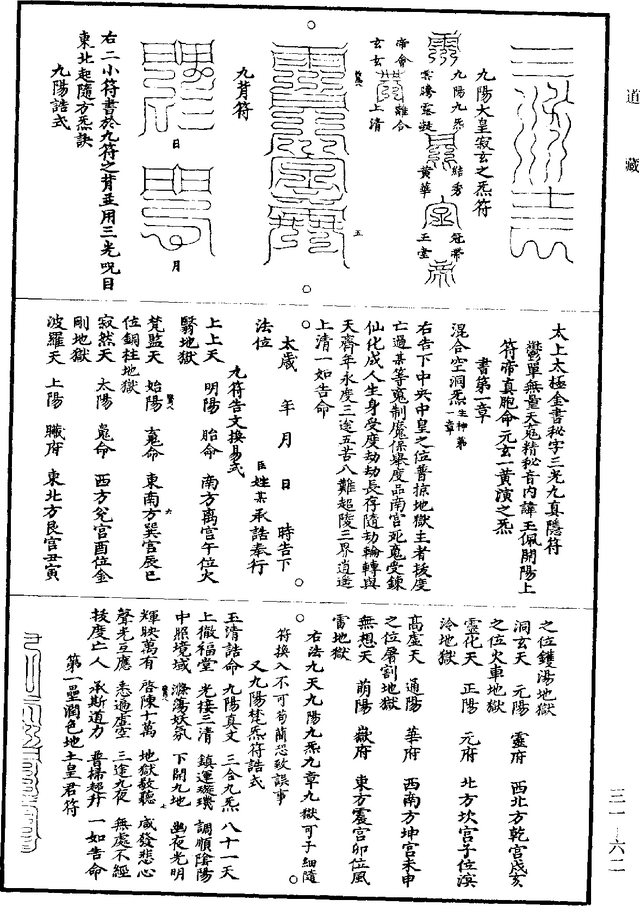 道藏
九陽大皇寂玄之炁符
九陽九炁
結秀
冠帶
雲濤靈凝
黃華
玉堂
帝會
離合
玄玄
上清
五
九背符
日
月
右二小符書於九符之背並用三光呪目
東北起隨方炁訣
九陽誥式
太上太極金書秘字三光九真隱符
鬱單無量天鬼精秘音內諱玉佩開陽上
符帝真胞命元玄一黃演之炁
書第一章
混合空洞炁生神第一章
右告下中央中皇之位普掠地獄主者拔度
亡過某等寃制魔保舉度品南宮死寃受鍊
仙化成人生身受度劫劫長存隨劫輪轉與
天齊年永度三塗五苦八難超陵三界逍遙
上清一如告命
太歲 年 月 日 時告下
法位 臣姓某承誥奉行
九符告文換易式
上上天 明陽 胎命 南方离宮午位火
翳地獄
梵監天 始陽 䰟命 東南方巽宮辰巳
位銅柱地獄
寂然天 太陽 䰟命 西方兌宮酉位金
剛地獄
波羅天 上陽 臟府 東北方艮宮丑寅
之位鑊湯地獄
洞玄天 元陽 靈府 西北方乾宮戌亥
之位火車地獄
靈化天 正陽 元府 北方坎宮子位溟
泠地獄
高虛天 通陽 華府 西南方坤宮未申
之位屠割地獄
無想天 萌陽 嶽府 東方震宮卯位風
雷地獄
右法九天九陽九炁九章九獄可子細隨
符換入不可苟簡恐致誤事
又九陽梵炁符誥式
玉清誥命 九陽真文 三合九炁 八十一天
上徹福堂 光接三清 鎮運璇璣 調順陰陽
中照境域 滌蕩妖氛 下開九地 幽夜光明
輝映萬有 啓陳十萬 地獄敬聽 咸發悲心
聲光互應 悉遍虛空 三塗九夜 無處不經
拔度亡人 承斯道力 普掃超昇 一如告命
第一壘潤色地土皇君符
三一-六二